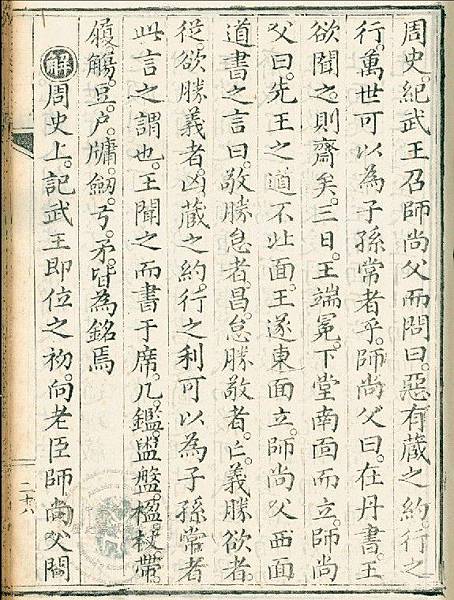 周史。紀武王召師尚父而問曰。惡有蔵之約。行之
行。萬世可以為子孫常者乎。師尚父曰。在丹書。王
欲聞之。則齋矣。三日。王端冕。下堂南面而立。師尚
父曰。先王之道不北面。王遂東面立。師尚父西面
道書之言曰。敬勝怠者。昌。怠勝敬者。亡。義勝欲者。
從。欲勝義者。凶。蔵之約。行之利可以為子孫常者
此言之謂也。王聞之而書于席。几。鑑。盥盤。楹。杖。帶。
履。觴。豆。户。牗。劒。弓。矛。皆為銘焉
解 周史上。記武王即位之初。向老臣師尚父問
二十八